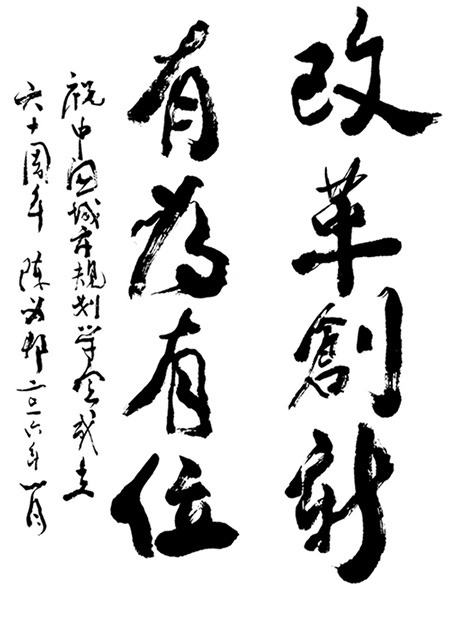 改革創新
有为有位
祝中国城市规划学会成立
六十周年 陈为邦二〇一六年八月